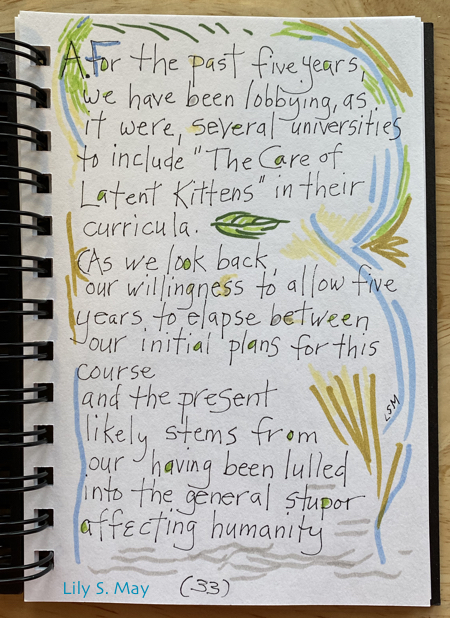 A. For the past five years,
we have been lobbying, as
it were, several universities
to include "The Care of
Latent Kittens" in their
curricula.
(As we look back,
our willingness to allow five
years to elapse between
our initial plans for this
course
and the present
likely stems from
our having been lulled
into the general stupor
affecting humanity
LSM
Lily S. May (33)